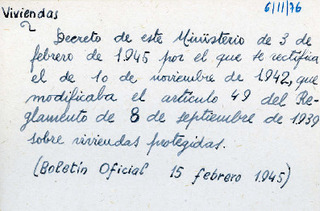 Viviendas
6/11/76
Decreto de este Ministerio de 3 de
febrero de 1945 por el que se rectifica
el de 10 de noviembre de 1942, que
modificaba el artículo 49 del Re-
glamento de 8 de septiembre de 1939
sobre viviendas protegidas.
(Boletín Oficial 15 febrero 1945)